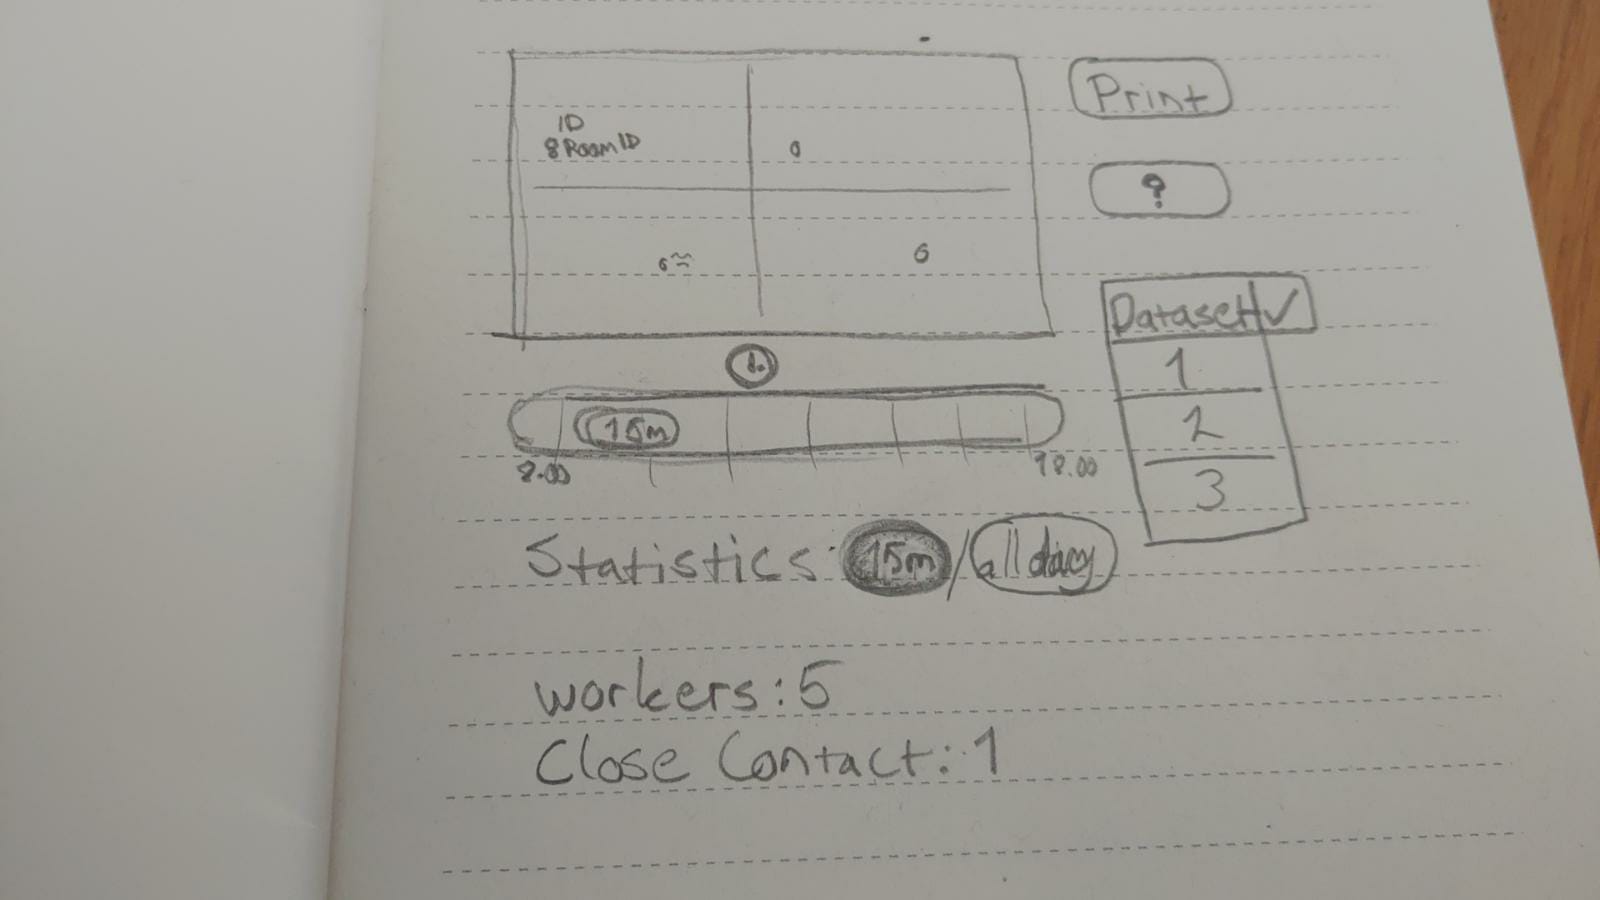 Print
ID
8 Room ID
?
Dataset
1
2
3
15m
8.00
18.00
Statistics 15m / all day
workers: 5
Close Contact: 1